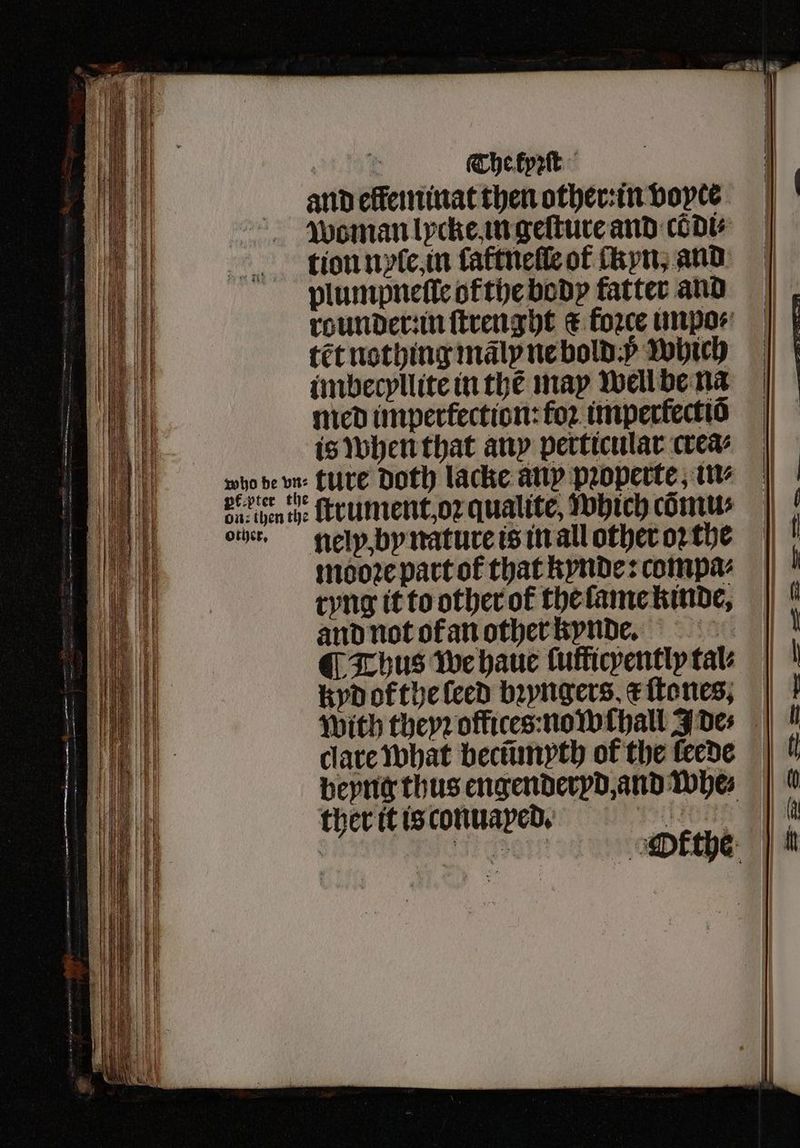 The fyrſt
and effeminat then other:in voyce
woman lycke,in geſture and cõdi⸗
tion nyſe,in ſaftneſſe of ſkyn, and
plumpneſſe of the body fatter and
rounder:in ſtrenght & force impo⸗
tẽt nothing mãly ne bold:þͭ which
imbecyllite in thẽ may well be na
med imperfection: for imperfectiõ
is when that any perticular crea⸗
ture doth lacke any properte, in⸗
ſtrument,or qualite, which cõmu⸗
nely,by nature is in all other or the
moore part of that kynde: compa⸗
ryng it to other of the ſame kinde,
and not of an other kynde.
¶ Thus we haue ſufficyently tal⸗
kyd of the ſeed bryngers, & ſtones,
with theyr offices:now ſhall I de⸗
clare what becũmyth of the ſeede
beyng thus engenderyd,and whe⸗
ther it is conuayed.
Of the
who be vn⸗
pf⸗yter the
one then the
other.